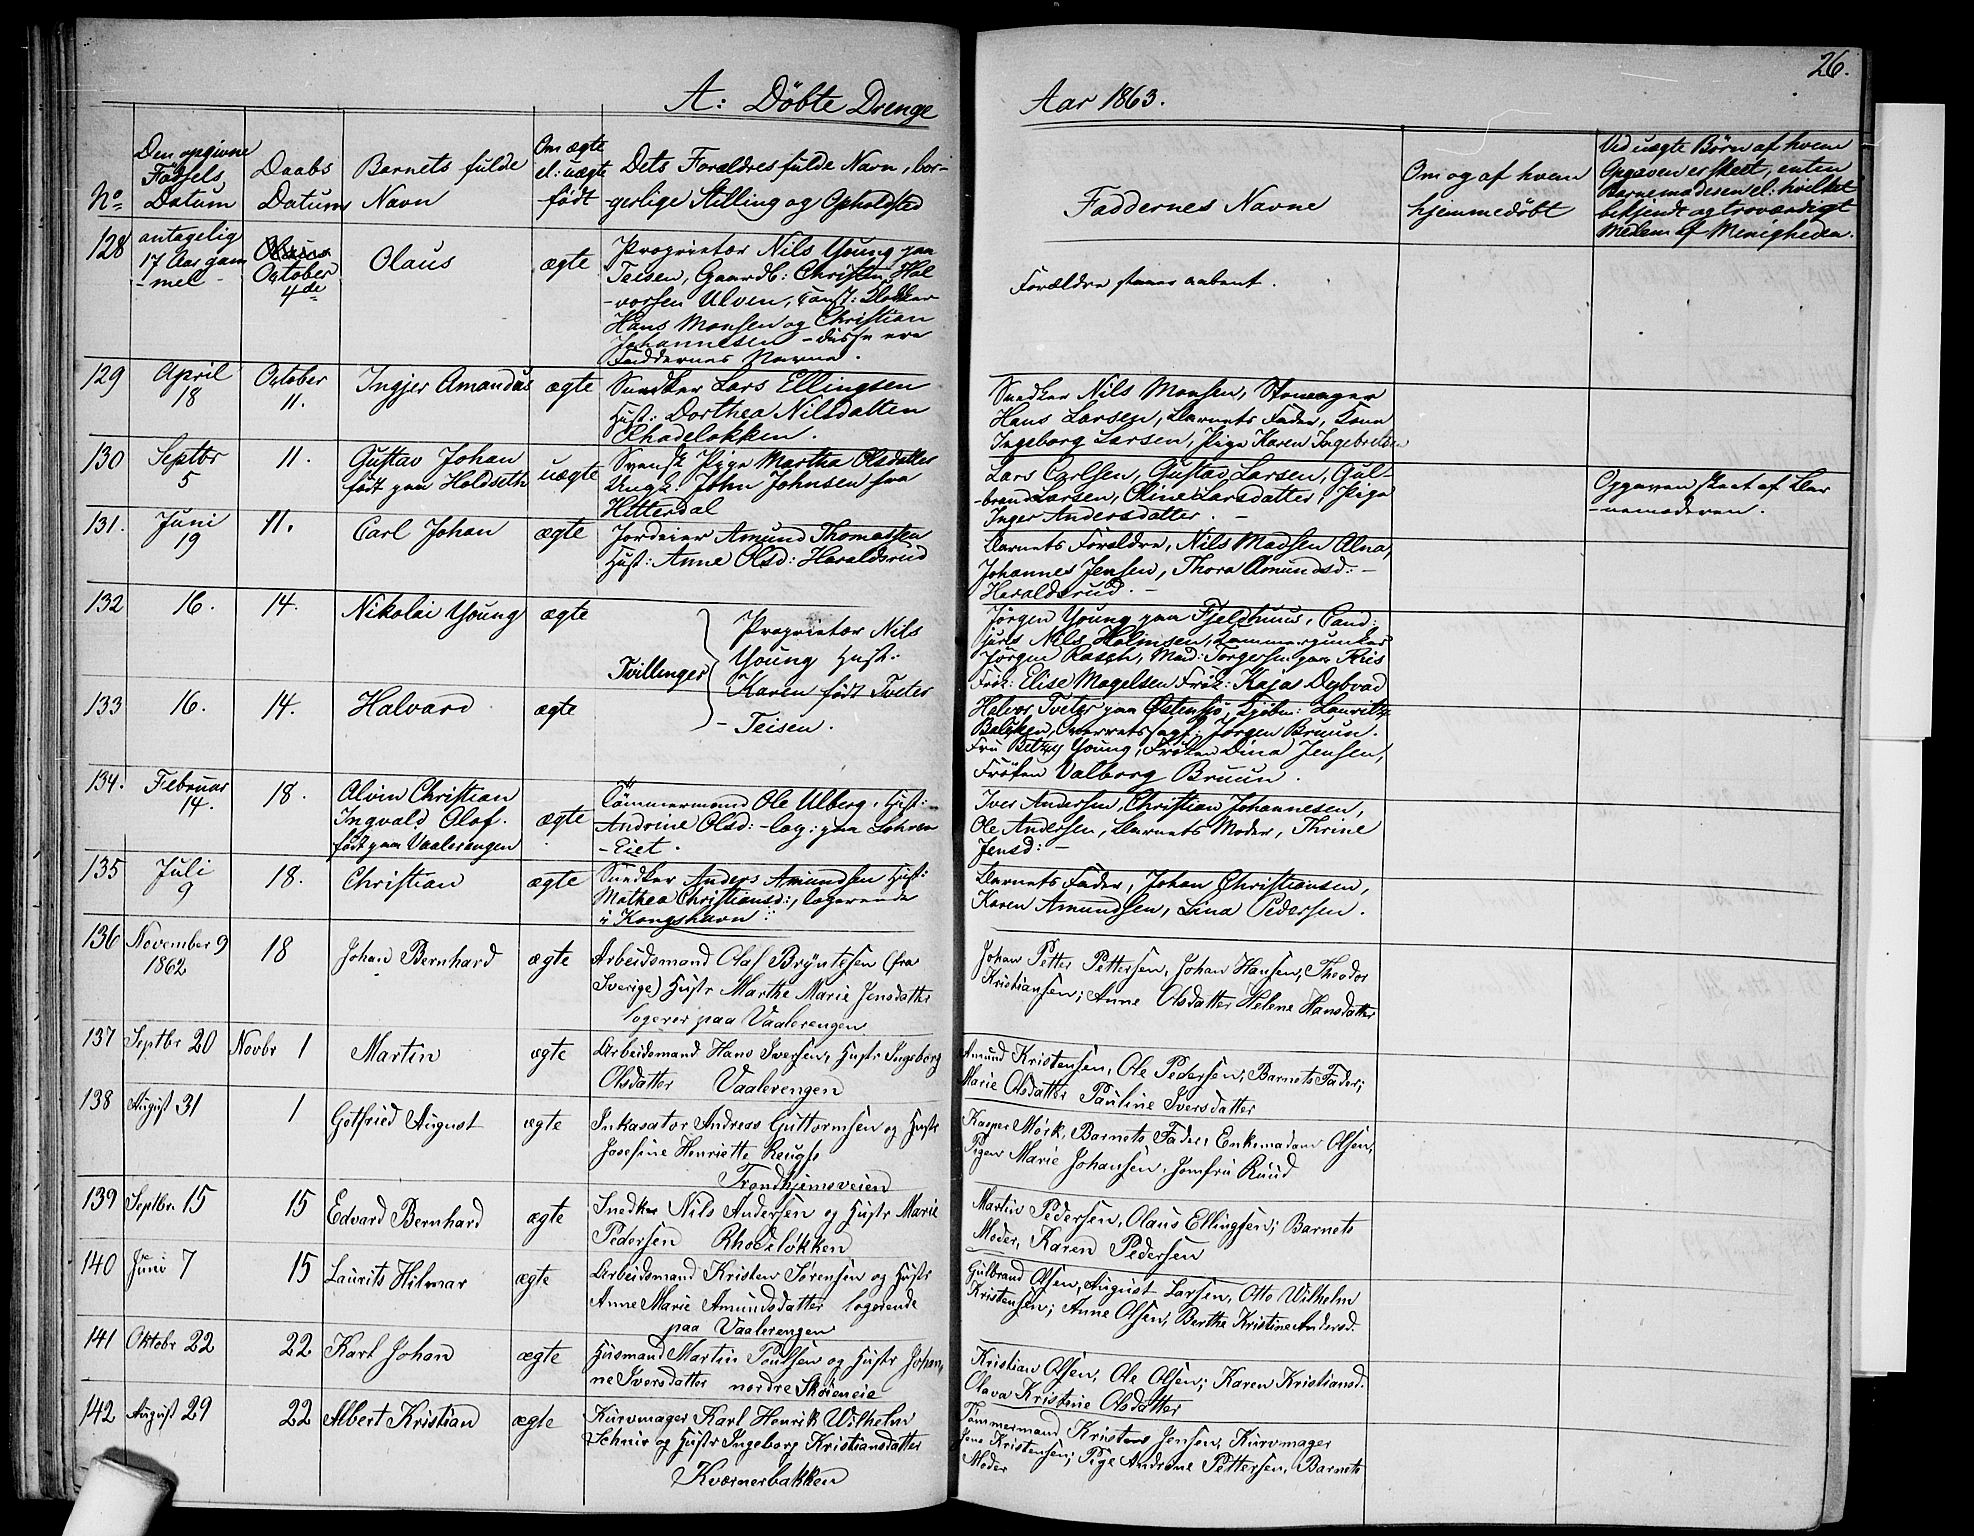 26.
A: Döbte Drenge
Aar 1863.
No
Den opgivne Fødsels Datum
Daabs Datum
Barnets fulde Navn
Om ægte el: uægte født
Dets Forældres fulde Navn, borgerlige Stilling og Opholdsted
Faddernes Navne
Om og af hvem hjemmedøbt
Ved uægte Børn af hvem
Opgaven er skeet, enten
Barnemoderen el: hvilket
bekjendt og troværdigt
Medlem af Menigheden.
128
antagelig
17 Aar gam
-mel -
October
4de
Olaus
ægte
Proprietær Nils Young paa
Teisen, Gaardb: Christen Hal
-vorsen Ulven, const: Klokker
Hans Monsen og Christian
Johannesen - disse ere
Faddernes Navne.
Forældre staaer aabent.
129
April
18
October
11.
Ingjer Amandus
ægte
Snedker Lars Ellingsen
Hust: Dorthea Nilsdatten
Rhodeløkken.
Snedker Nils Monsen,
Hans Larsen, Barnets Fader, Kone
Ingeborg Larsen, Pige Karen Ingebretsen
130
Septbr
5
11.
Gustav Johan
født paa Holdseth
uægte
Svensk Pige Martha Olsdatter
Ungk. John Johnsen fra
Hitterdal
Lars Carlsen, Gustav Larsen, Gul-
-brand Larsen, Oline Larsdatter, Pige
Inger Andersdatter. -
Opgaven skeet af Bar
-nemoderen.
131.
Juni
19
11.
Carl Johan
ægte
Jordeier Amund Thomassen
Hust: Anne Olsd: Haraldsrud
Barnets Forældre, Nils Madsen Alna,
Johannes Jensen, Thora Amundsd: -
Heraldsrud. -
132
16.
14.
Nikolai Young
ægte
Tvillinger
Proprietær Nils
Young Hust:
Karen født Tveter
- Teisen.
Jørgen Young paa Fjeldhuus, Cand:
juris Nils Holmsen, Kammerjunker
Jørgen Rasch, Mad: Torgersen paa Riis
Frøk: Elise Magelsen Frøk: Kajas Dybvad
133
16.
14.
Halvard
ægte
Halvor Tveter paa Østensjø, Kjøbm: Lauritz
Overretssagf: Jørgen Bruun.
Fru Betzy Young, Frøken Dina Jensen,
Frøken Valborg Bruun.
134.
Februar
14.
18.
Alvin Christian
Ingvald Olaf.
født paa Vaalerengen
ægte
Tömmermand Ole Ulberg, Hust: -
Andrine Olsd: - log: paa Lohren
- Eiet.
Iver Andersen, Christian Johannesen,
Ole Andersen, Barnets Moder, Thrine
Jensd: -
135
Juli
9
18.
Christian
ægte
Snedker Anders Amundsen Hust:
Mathea Christiansd:, logerende
i Kongshavn.
Barnets Fader, Johan Christiansen,
Karen Amundsen, Lina Pedersen.
136
November 9
1862
18
Johan Bernhard
ægte
Arbeidsmand Olaf Bryntesen (fra
Sverige) Hustr Marthe Marie Jensdatter
logerer paa Vaalerengen
Johan Petter Pettersen, Johan Hansen, Theodor
Kristiansen; Anne Olsdatter Helene Hansdatter
137
Septbr 20
Novbr 1
Martin
ægte
Arbeidsmand Hans Iversen, Hustr Ingeborg
Olsdatter Vaalerengen
Amund Kristensen, Ole Pedersen, Barnets Fader;
Marie Olsdatter Pauline Iversdatter
138
August 31
1
Gotfried August
ægte
Inkasator Andreas Guttormsen og Hustr
Josefine Henriette
Trondhjemsveien
Kasper Mörk, Barnets Fader, Enkemadam Olsen,
Pigen Marie Johansen, Jomfru Ruud
139
Septbr 15
15
Edvard Bernhard
ægte
Snedker Nils Andersen og Hustr Marie
Pedersen Rhodeløkken
Martin Pedersen, Olaus Ellingsen; Barnets
Moder, Karen Pedersen
140
Juni 7
15
Laurits Hilmar
ægte
Arbeidsmand Kristen Sörensen og Hustr
Anne Marie Amundsdatter logerende
paa Vaalerengen
Gulbrand Olsen, August Larsen, Otto Wilhelm
Kristensen; Anne Olsen, Berthe Kristine Andersd.
141
Oktobr 22
22
Karl Johan
ægte
Husmand Martin Poulsen og Hustr Johan,
ne Iversdatter nordre Skøieneie
Kristian Olsen, Ole Olsen; Karen Kristiansd.
Olava Kristine Olsdatter
142
August 29
22
Albert Kristian
ægte
Kurvmager Karl Henrik Wilhelm
og Hustr Ingeborg Kristiansdatter
Kværnerbakken
Tømmermand Kristens Jensen, Kurvmager
Jens Kristensen; Pige Andrine Pettersen, Barnets
Moder